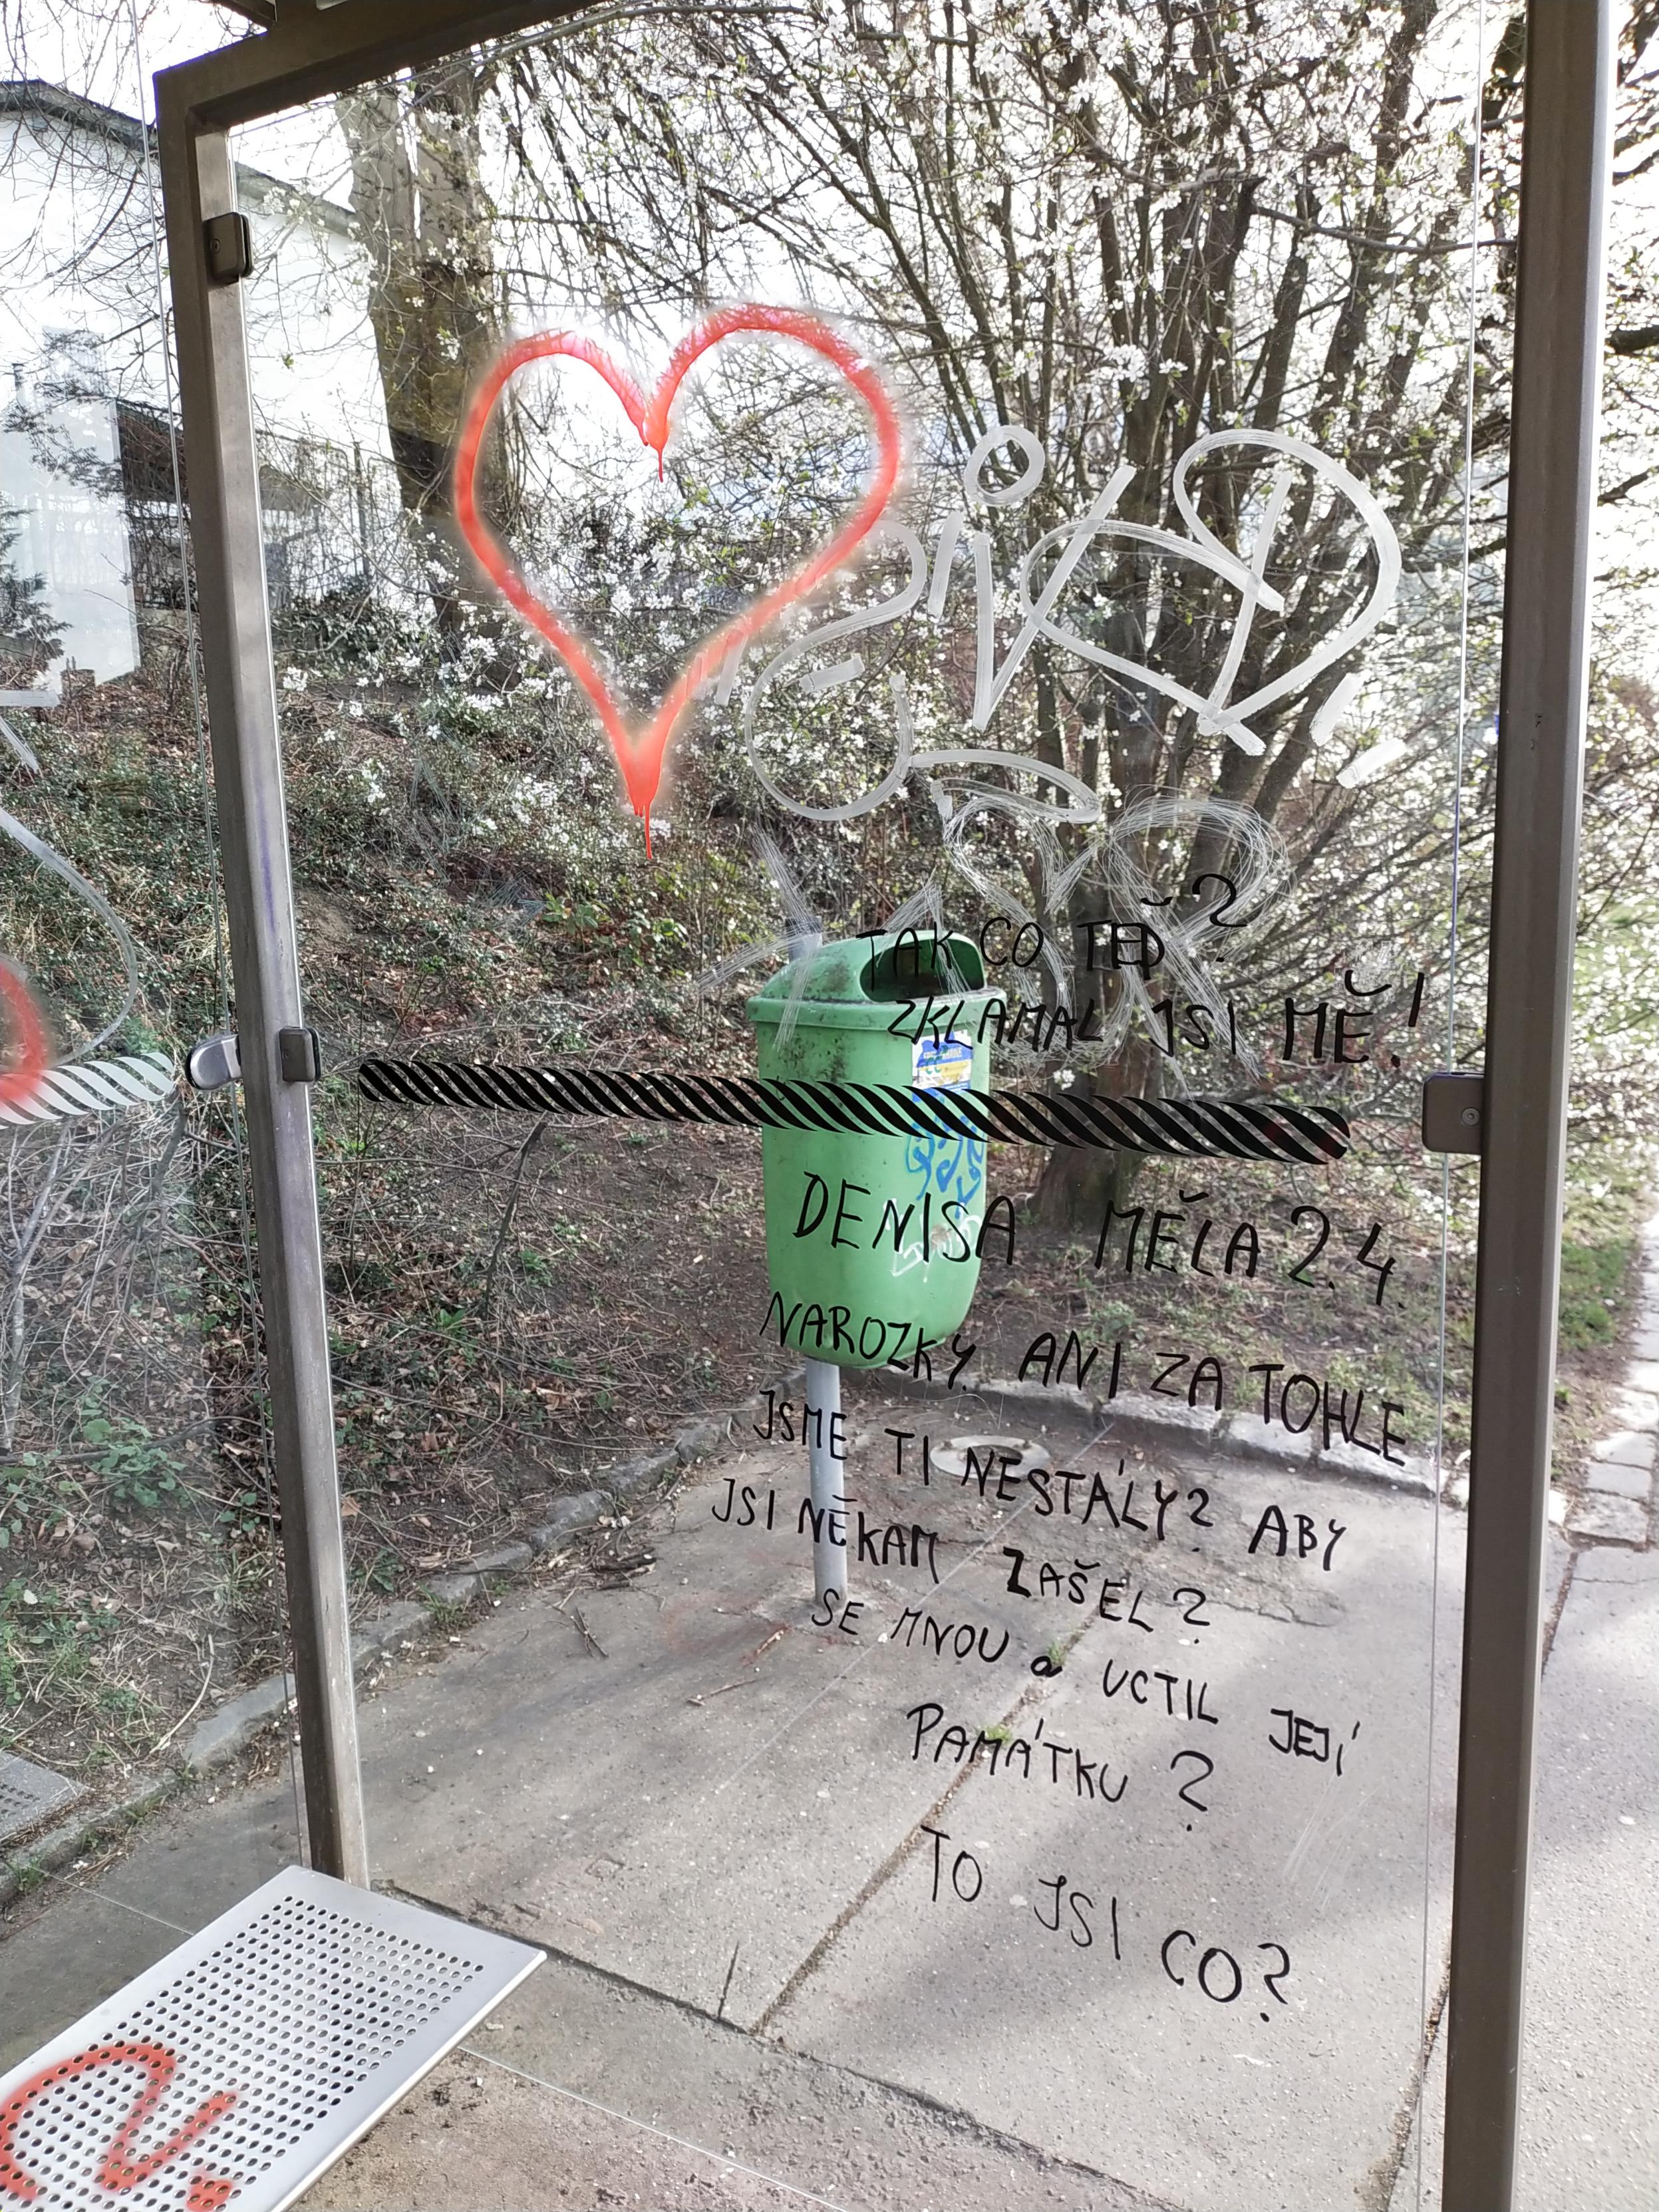 TAK CO TEĎ?
ZKLAMAL JSI MĚ!
DENISA MĚLA 2.4.
NAROZKY. ANI ZA TOHLE
JSME TI NESTÁLY? ABY
JSI NĚKAM ZAŠEL?
SE MNOU a UCTIL JEJÍ
PAMÁTKU?
TO JSI CO?